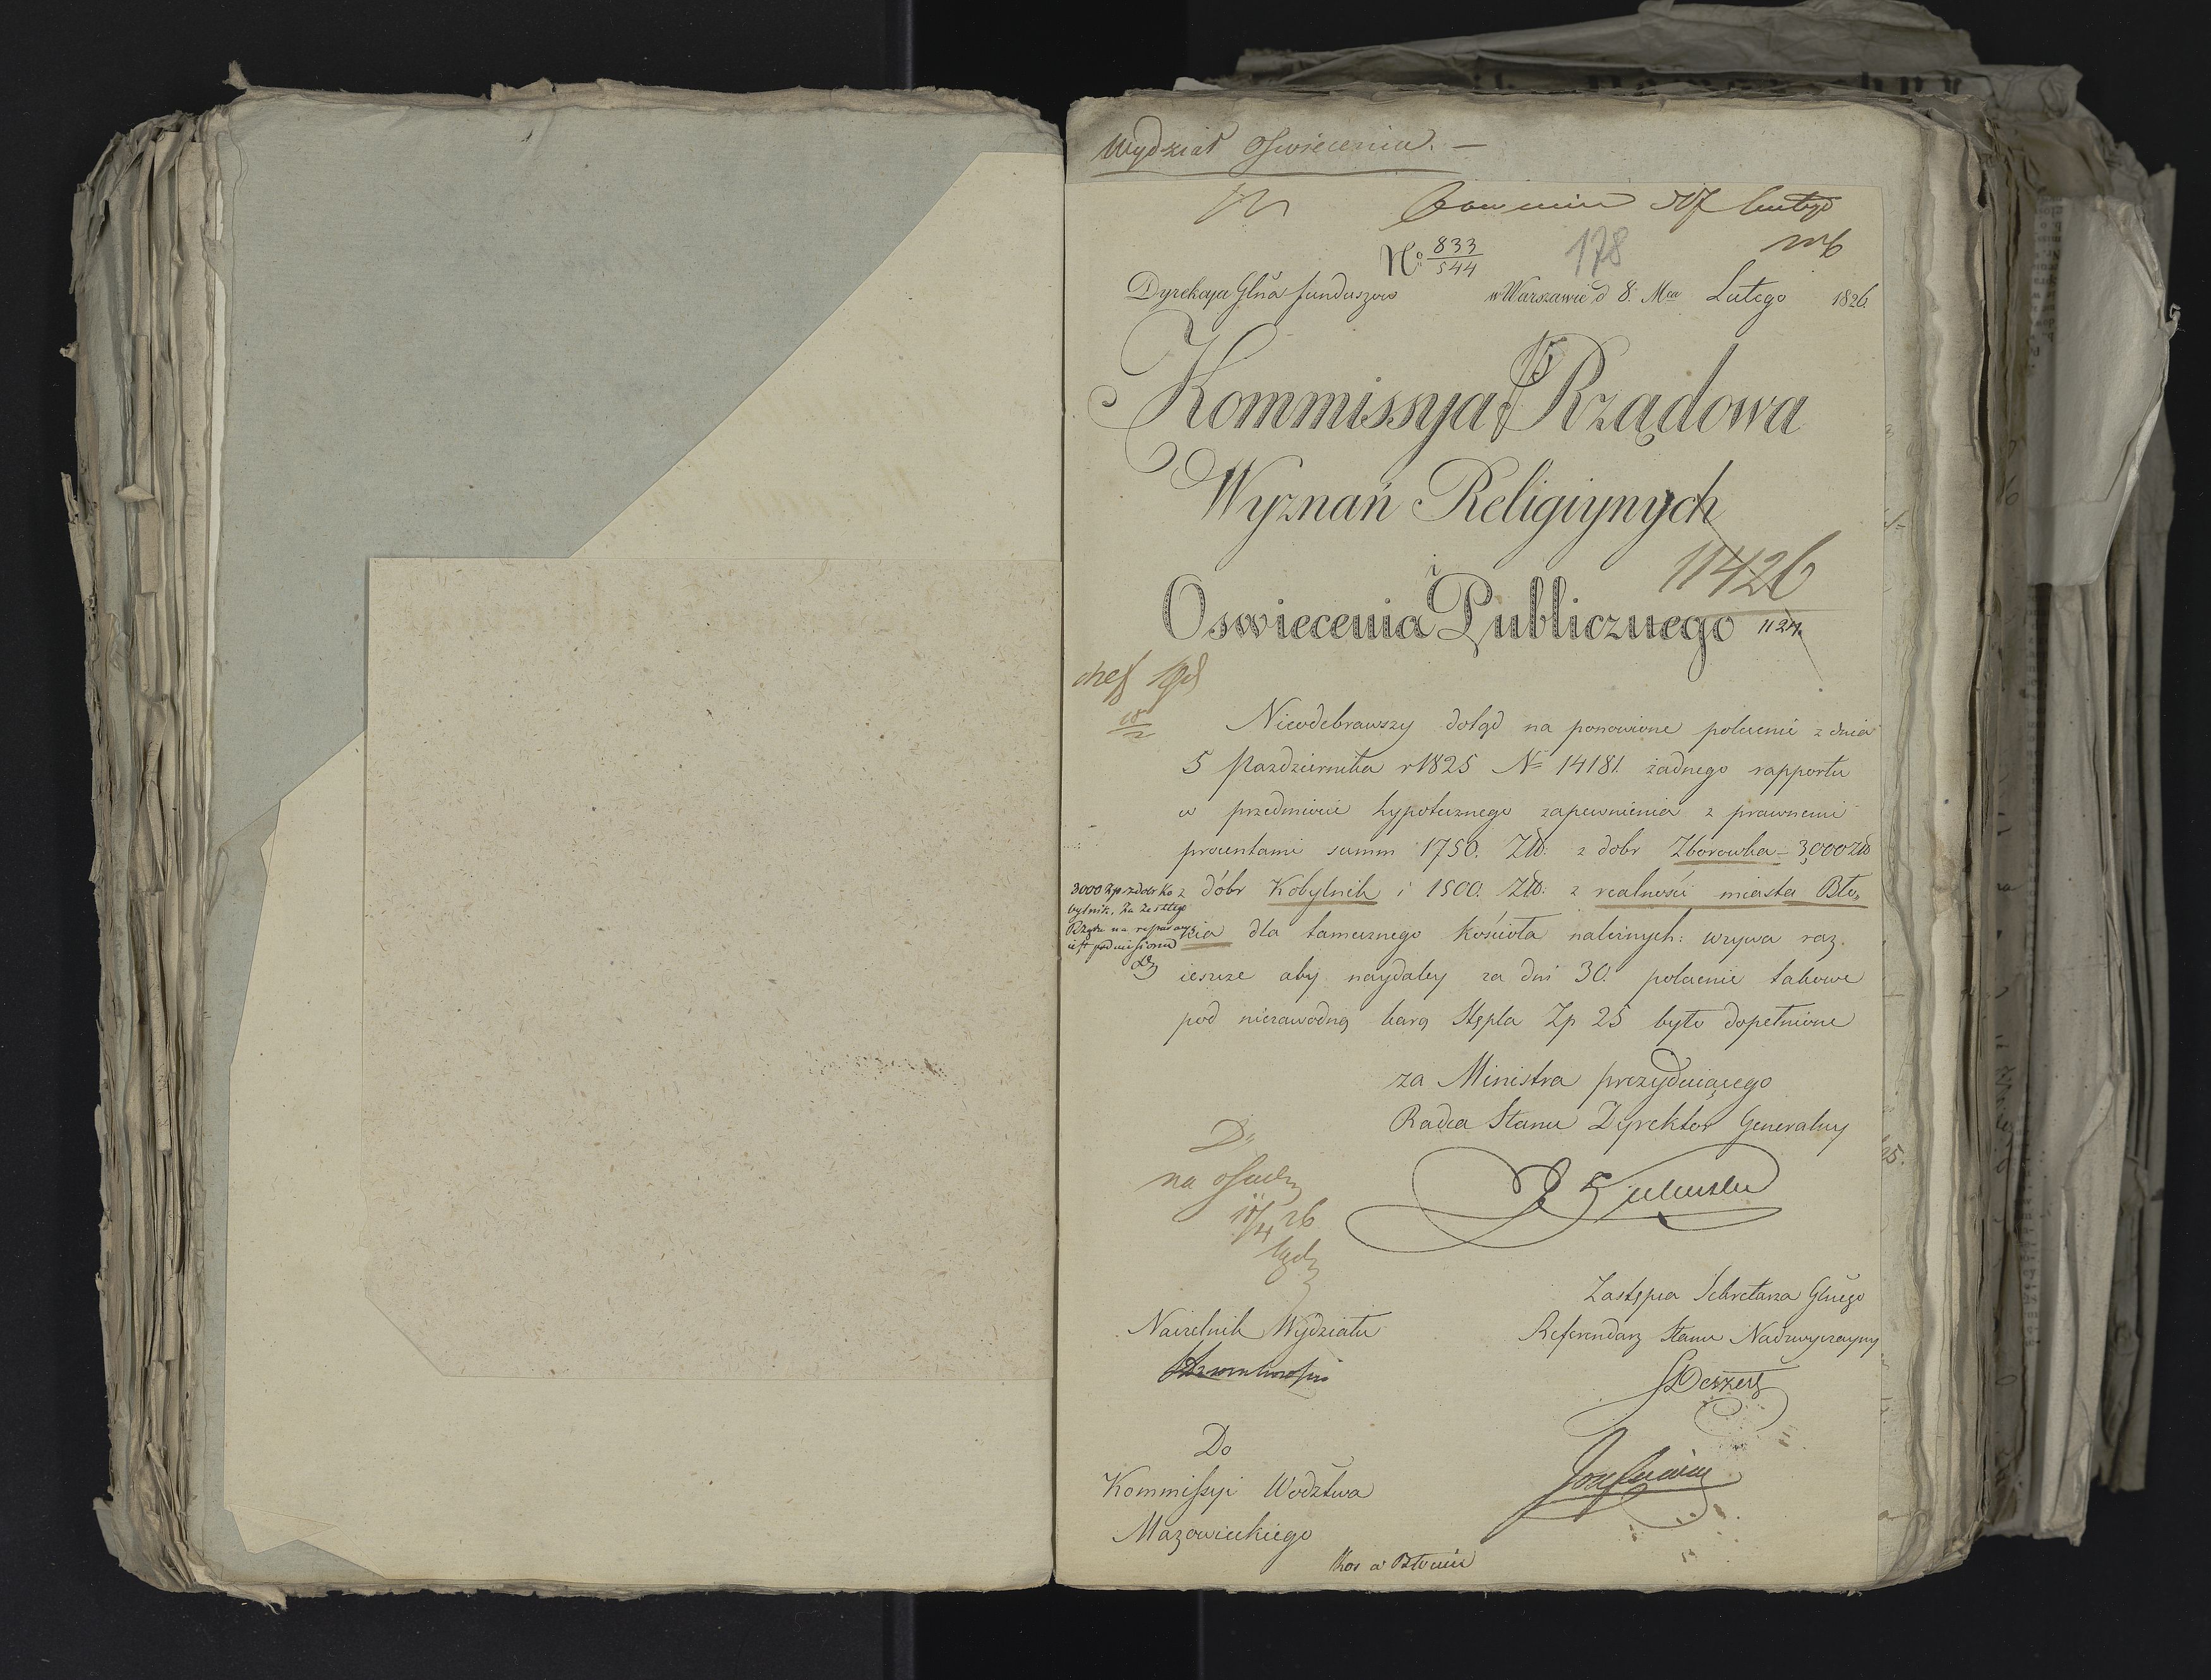 Wydział Oswiecenia. —
17 Lutego
No 833/544
178
Dyrekcya Głna Funduszow w Warszawie d 8. Mca Lutego 1826
Kommissya Rządowa
Wyznań Religiynych
i
Oswiecenia Publicznego
11426
1124
Nieodebrawszy dotąd na ponowione polecenie z dnia
5 Pazdziernika r 1825 No 14181. żadnego rapportu
w przedmiocie hypotecznego zapewnienia z prawnemi
procentami summ 1750. Złt: z dobr Zborowka – 3,000 Złt
z dóbr Kobylnik i 1500. Złt: z realnosci miasta Bło„
nia dla tamecznego kościoła należnych: wzywa raz
ieszcze aby naydaley za dni 30. polecenie takowe
pod niezawodną karą Stępla Zp 25 było dopełnione
3000 Zp z dobr Ko
bylnik, za
na
iest
za Ministra prezyduiącego
Radca Stanu Dyrektor Generalny
na
26
Zastępca Sekretarza Głnego
Naczelnik Wydziału Referendarz Stanu Nadzwyczayny
Do
Kommissyi Wodztwa
Mazowieckiego
Koś w Błoniu